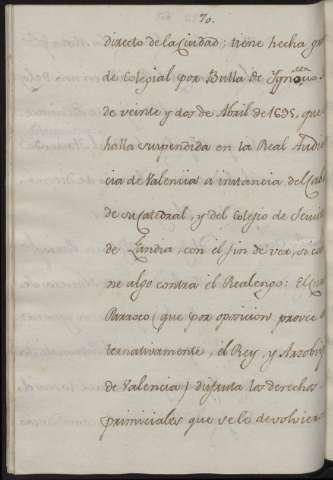 70.
directo de la Ciudad; tiene hecha gr
de Colegial por Bulla de
de veinte y dos de Abril de 1695, que
halla suspendida en la Real Audi
cia de Valencia a instancia del
de su Catedral, y del Colegio de
de Gandia, con el fin de ver, si
ne algo contra el Realengo: El
Parroco (que por oposicion provee
ternativamente, el Rey, y Arzobis
de Valencia) disfruta los derechos
primiciales que se le devolvier